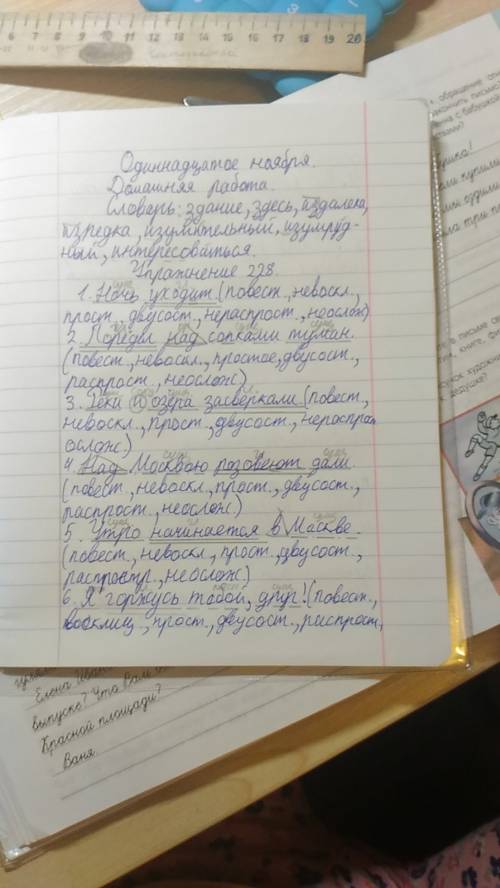 6 7 8 9 10 11 12 13 14 15 16 17 18 19 20
Одиннадцатое ноября.
Домашняя работа.
Словарь: здание, здесь, издалека,
изредка, изумительный, изумруд-
ный, интересоваться.
Упражнение 228.
1. Ночь уходит. (повест., невоскл.,
прост., двусост., нераспрост., неослож)
2. Поредел над сопками туман.
(повест., невоскл., простое, двусост.,
распрост., неослож)
3. Реки и озера засверкали (повест.,
невоскл., прост., двусост., нераспрост
ослож)
4. Над Москвою розовеют дали.
(повест., невоскл., прост., двусост.,
распрост., неослож)
5. Утро начинается в Маскве.
(повест., невоскл., прост., двусост.,
распростр., неослож)
6. Я горжусь тобой, друг! (повест.,
восклиц., прост., двусост., распрост.,
Елена Иван
выпуске? Что Вам
Красной площади?
Ваня.
обращение
закончить письмо?
с бабушкой
купили
в письме
книге,
художни
дедушке?